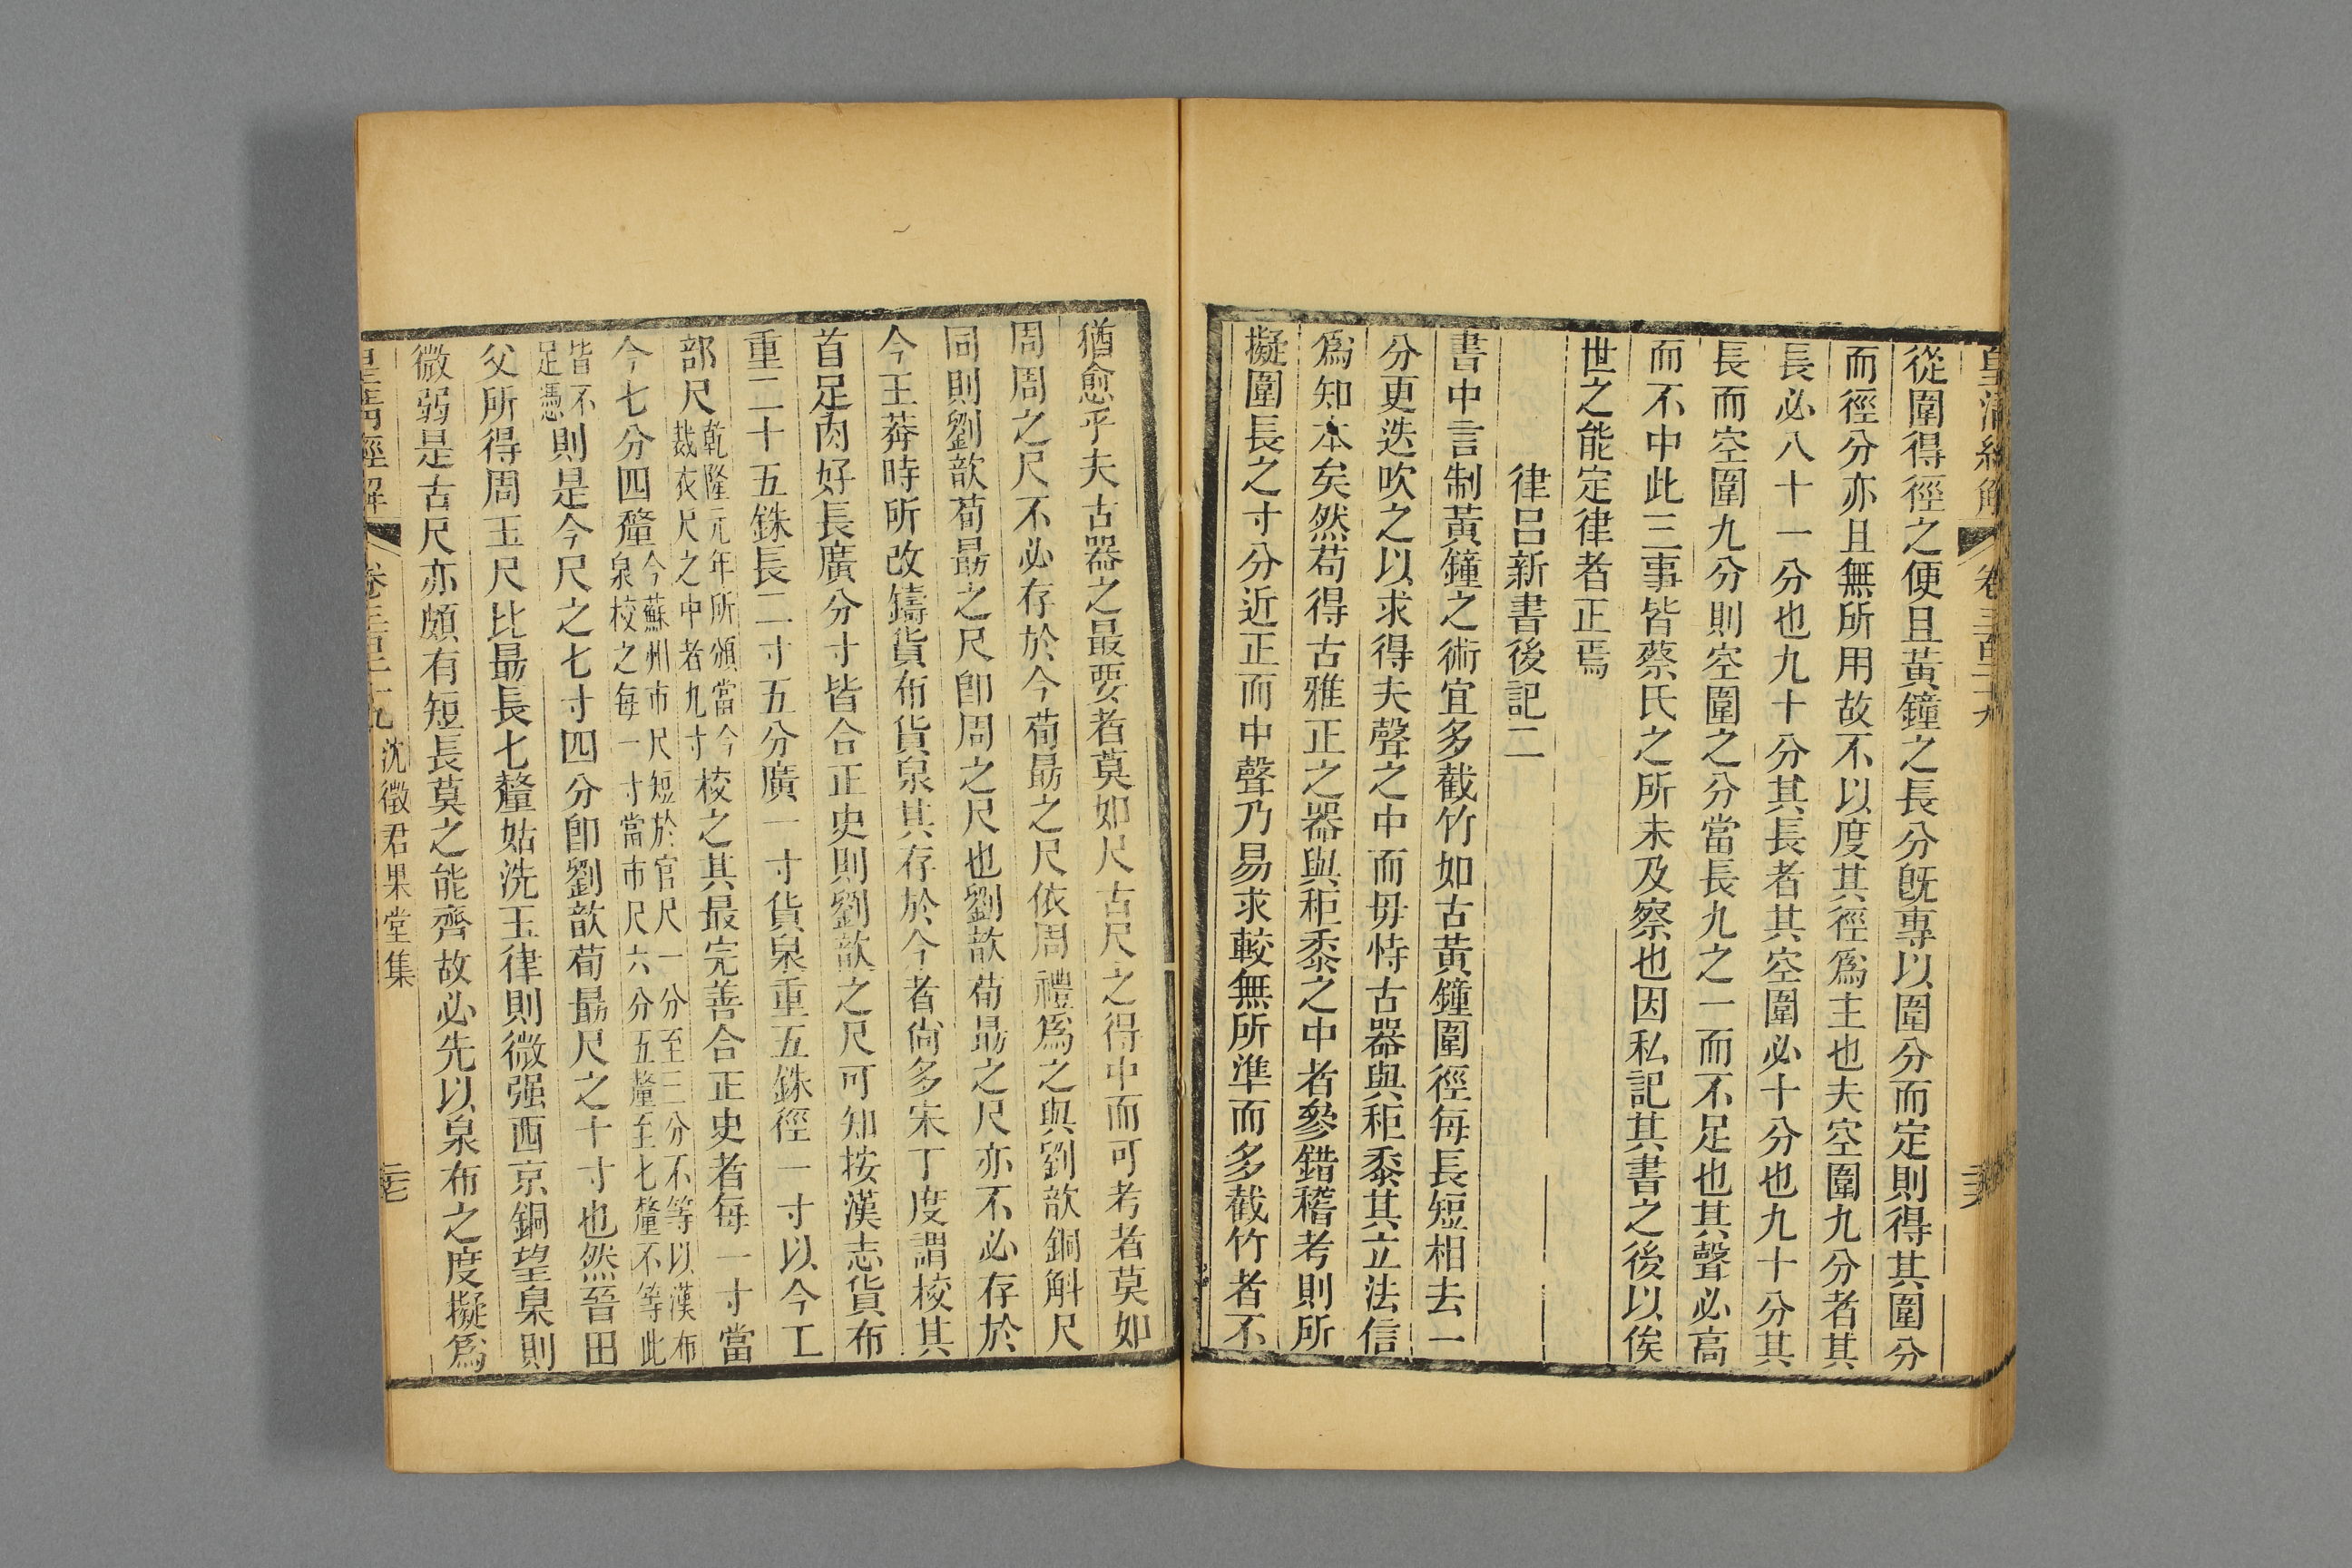 皇清經解 卷三百二十九 二六
從圍得徑之便且黃鐘之長分旣專以圍分而定則得其圍分
而徑分亦且無所用故不以度其徑爲主也夫空圍九分者其
長必八十一分也九十分其長者其空圍必十分也九十分其
長而空圍九分則空圍之分當長九之一而不足也其聲必高
而不中此三事皆蔡氏之所未及察也因私記其書之後以俟
世之能定律者正焉
律呂新書後記二
書中言制黃鐘之術宜多截竹如古黃鐘圍徑每長短相去一
分更迭吹之以求得夫聲之中而毋恃古器與秬黍其立法信
爲知本矣然苟得古雅正之器與秬黍之中者參錯稽考則所
擬圍長之寸分近正而中聲乃易求較無所準而多截竹者不
猶愈乎夫古器之最要者莫如尺古尺之得中而可考者莫如
周周之尺不必存於今荀勗之尺依周禮爲之與劉歆銅斛尺
同則劉歆荀勗之尺卽周之尺也劉歆荀勗之尺亦不必存於
今王莽時所改鑄貨布貨泉其存於今者尙多宋丁度謂校其
首足肉好長廣分寸皆合正史則劉歆之尺可知按漢志貨布
重二十五銖長二寸五分廣一寸貨泉重五銖徑一寸以今工
部尺乾隆元年所頒當今裁衣尺之中者九寸校之其最完善合正史者每一寸當
今七分四釐今蘇州市尺短於官尺一分至三分不等以漢布泉校之每一寸當市尺六分五釐至七釐不等此
皆不足憑則是今尺之七寸四分卽劉歆荀勗尺之十寸也然晉田
父所得周玉尺比勗長七釐姑洗玉律則微强西京銅望臬則
微弱是古尺亦頗有短長莫之能齊故必先以泉布之度擬爲
皇淸經解 卷三百二十九 沈徵君果堂集 二七